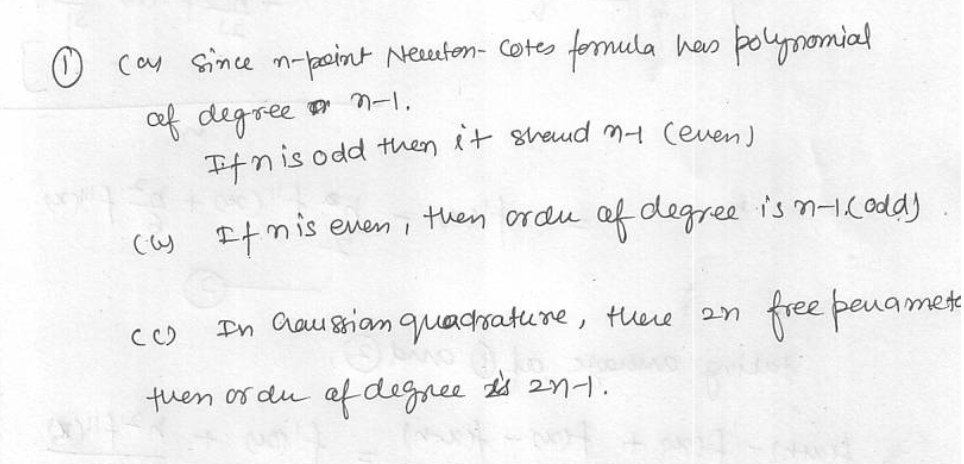 ① (a) Since n-point Newton-Cotes formula has polynomial
of degree n-1.
If n is odd then it n-1 (even)
If n is even, then order of degree is n-1.(odd)
(c) In Gaussian quadrature, there 2n free
then order of degree is 2n-1.